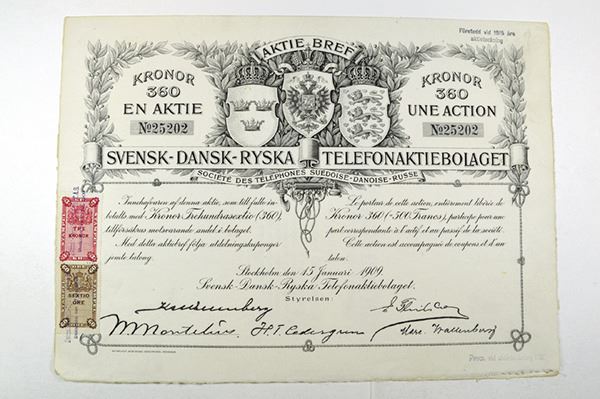 Företedd vid 1915 års
aktieteckning
AKTIE BREF
KRONOR
360
EN AKTIE
№25202
KRONOR
360
UNE ACTION
№25202
SVENSK-DANSK-RYSKA TELEFONAKTIEBOLAGET
SOCIÉTÉ DES TÉLÉPHONES SUÉDOISE-DANOISE-RUSSE
Innehafvaren af denna aktie, som till fullo in-
betalts med Kronor Trehundrasextio (360),
tillförsäkras motsvarande andel i bolaget.
Med detta aktiebref följa utdelningskuponger
jemte talong.
Le porteur de cette action, entièrement libérée de
Kronor 360 (=500 Francs), participe pour une
part correspondante à l'actif et au passif de la société.
Cette action est accompagnée de coupons et d'un
talon.
Stockholm den 15 Januari 1909.
Svensk-Dansk-Ryska Telefonaktiebolaget.
Styrelsen:
W. Montelius
H. T. Cedergren
Marc. Wallenberg
TRE
KRONOR
SEXTIO
ÖRE